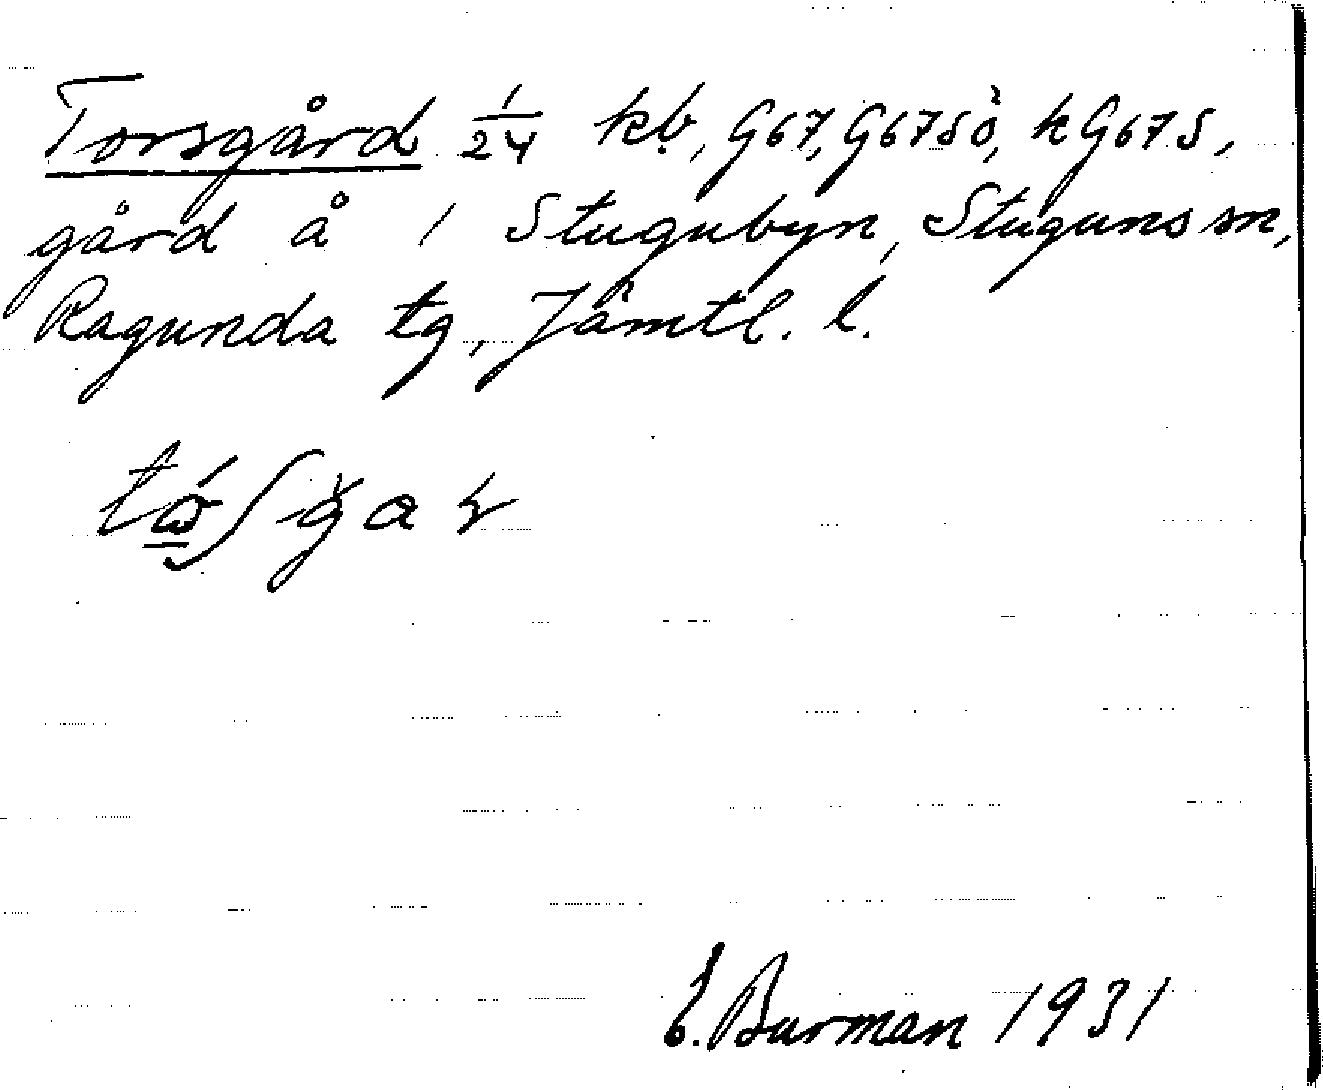 Torsgård 1/24 kb, G67, G67SÖ, kG67S,
gård å 1 Stugubyn, Stuguns sn,
Ragunda tg, Jämtl. l.
E. Burman 1931